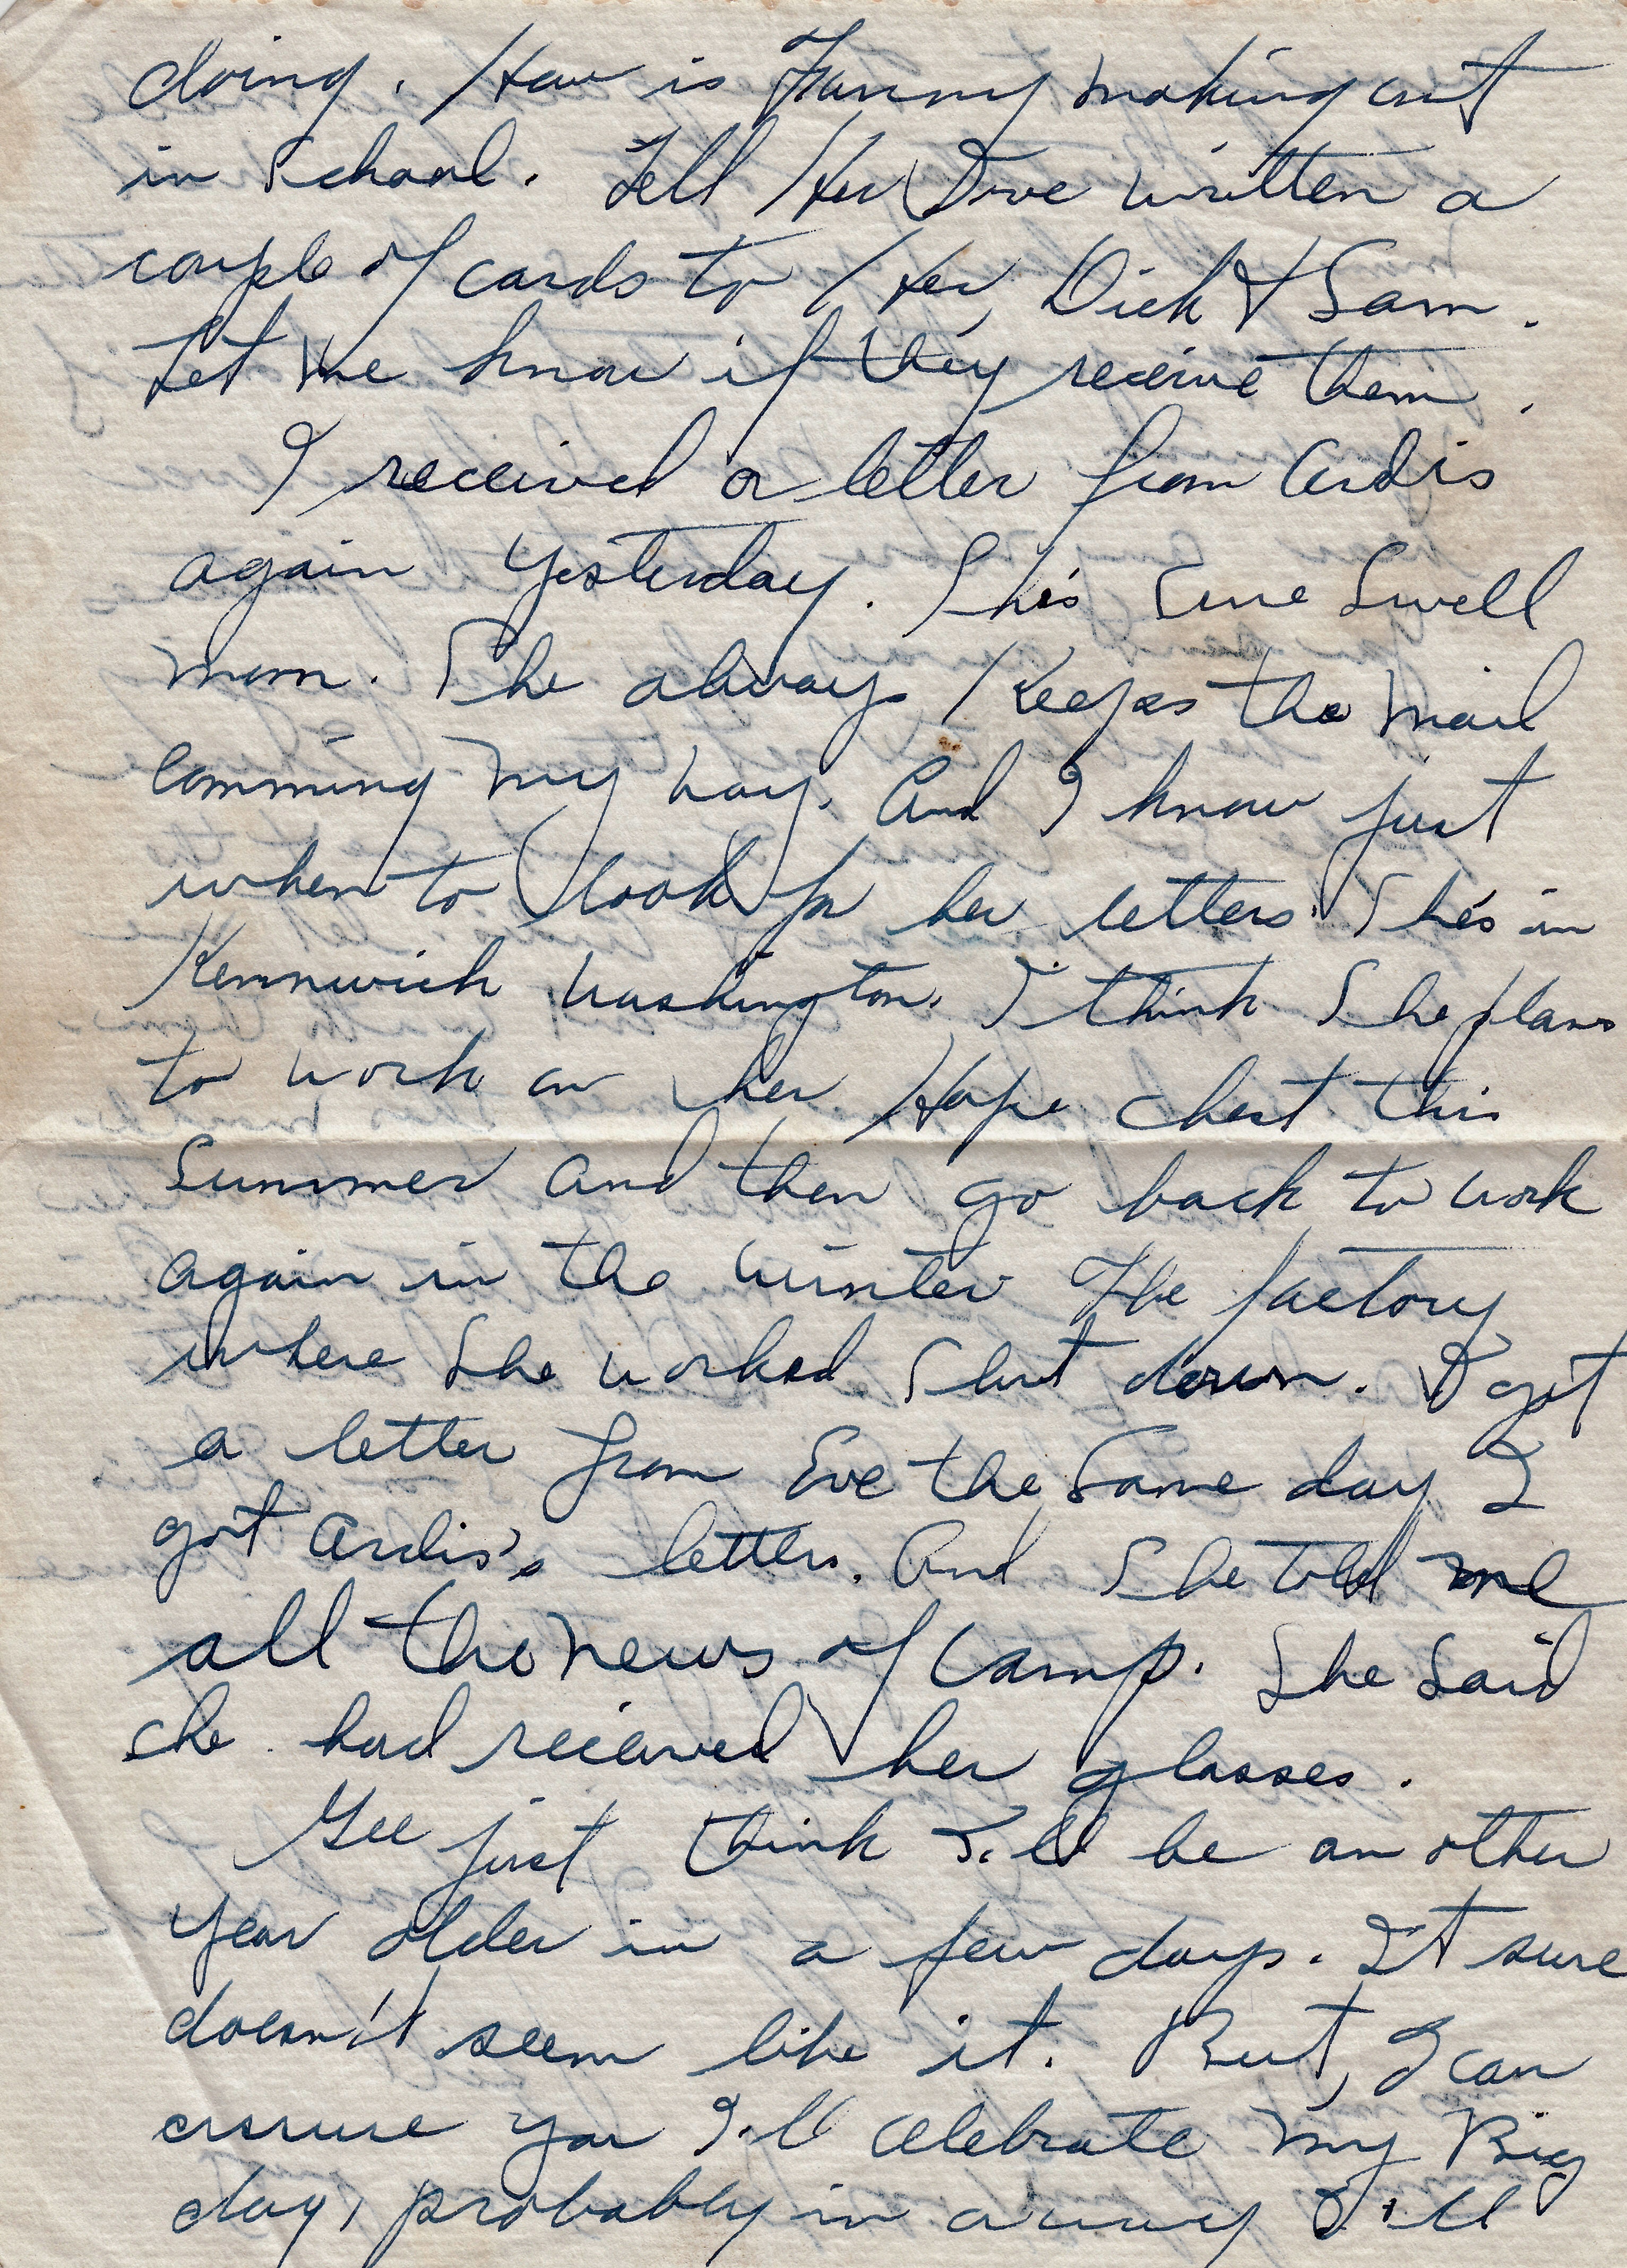 doing. How is Fanny making out
in School. Tell Her I've written a
couple of cards to Her, Dick & Sam.
Let me know if they receive them.
I received a letter from Ardis
again yesterday. She's Sure Swell
mom. She always Keeps the mail
comming my way. And I know just
when to look for her letters. She's in
Kennwick Washington. I think She plans
to work on her Hope chest this
Summer and then go back to work
again in the winter The factory
where She worked Shut down. I got
a letter from Eve the Same day I
got Ardis's letter. And She told me
all the news of Camp. She Said
she had received her glasses.
Gee just think I'll be an other
year older in a few days. It sure
doesn't seem like it. But, I can
assure you I'll celebrate my Big
day, probably in a way I'll